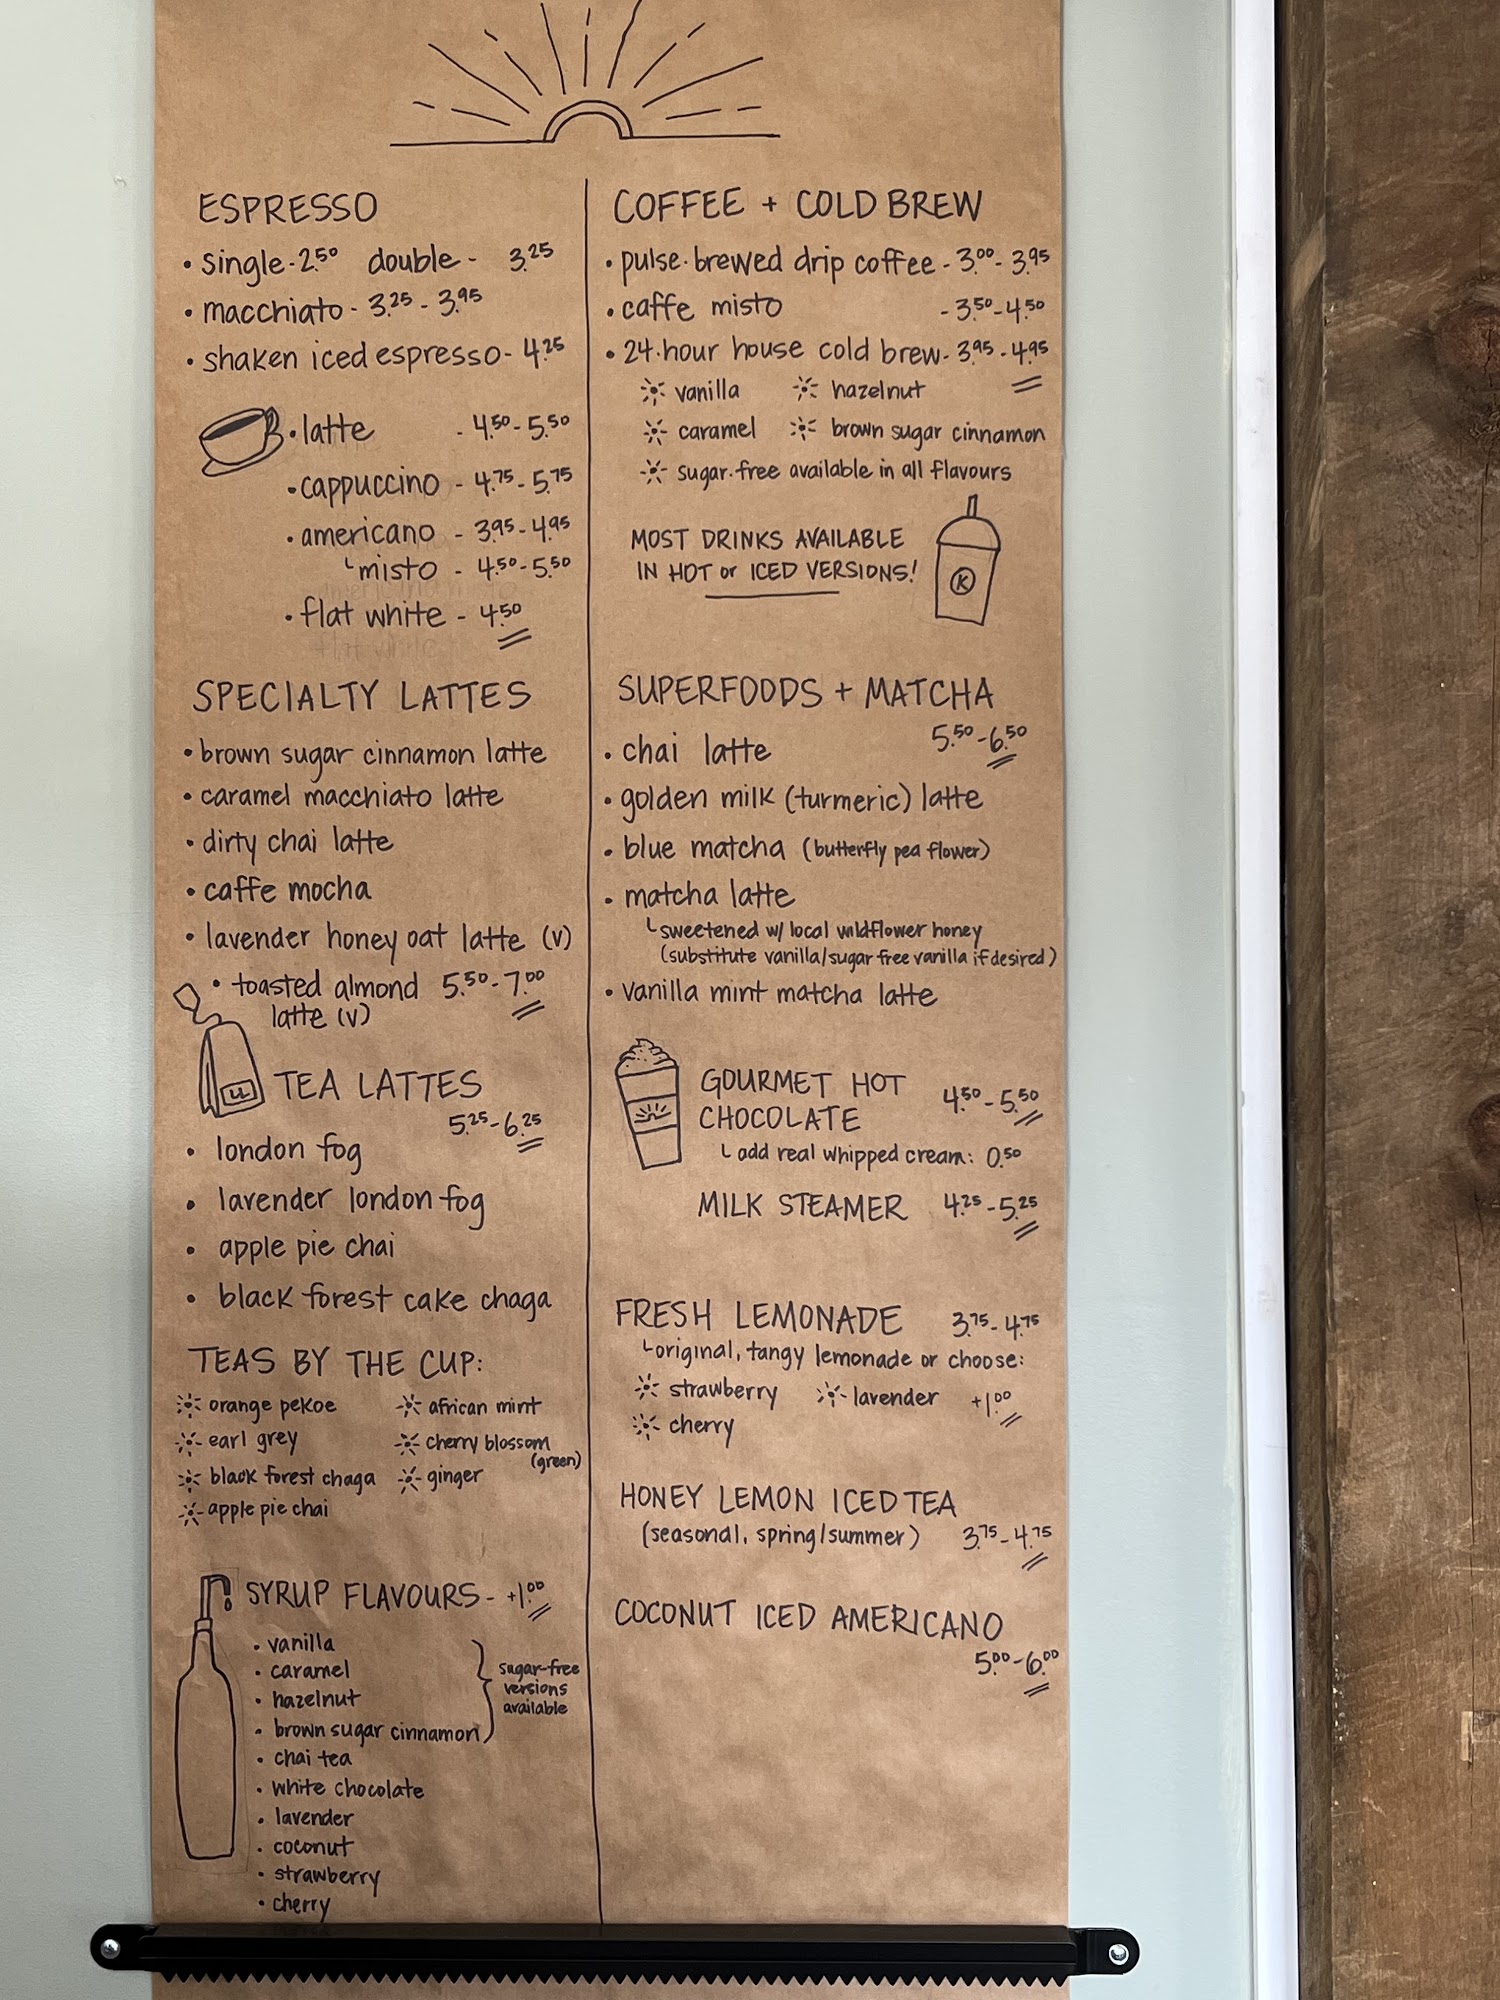 ESPRESSO
• single - 2.50 double - 3.25
• macchiato - 3.25 - 3.95
• shaken iced espresso - 4.25
• latte - 4.50 - 5.50
• cappuccino - 4.75 - 5.75
• americano - 3.95 - 4.95
└ misto - 4.50 - 5.50
• flat white - 4.50
SPECIALTY LATTES
• brown sugar cinnamon latte
• caramel macchiato latte
• dirty chai latte
• caffe mocha
• lavender honey oat latte (v)
• toasted almond 5.50 - 7.00
latte (v)
LL
TEA LATTES
5.25 - 6.25
• london fog
• lavender london fog
• apple pie chai
• black forest cake chaga
TEAS BY THE CUP:
orange pekoe african mint
earl grey cherry blossom
(green)
black forest chaga ginger
apple pie chai
SYRUP FLAVOURS - +1.00
• vanilla
• caramel
• hazelnut
• brown sugar cinnamon
sugar-free
versions
available
• chai tea
• white chocolate
• lavender
• coconut
• strawberry
• cherry
COFFEE + COLD BREW
• pulse-brewed drip coffee - 3.00 - 3.95
• caffe misto - 3.50 - 4.50
• 24-hour house cold brew - 3.95 - 4.95
vanilla hazelnut
caramel brown sugar cinnamon
sugar-free available in all flavours
MOST DRINKS AVAILABLE
IN HOT or ICED VERSIONS!
K
SUPERFOODS + MATCHA
5.50 - 6.50
• chai latte
• golden milk (turmeric) latte
• blue matcha (butterfly pea flower)
• matcha latte
└ sweetened w/ local wildflower honey
(substitute vanilla/sugar free vanilla if desired)
• vanilla mint matcha latte
GOURMET HOT
CHOCOLATE 4.50 - 5.50
└ add real whipped cream: 0.50
MILK STEAMER 4.25 - 5.25
FRESH LEMONADE 3.75 - 4.75
└ original, tangy lemonade or choose:
strawberry lavender +1.00
cherry
HONEY LEMON ICED TEA
(seasonal, spring/summer) 3.75 - 4.75
COCONUT ICED AMERICANO
5.00 - 6.00